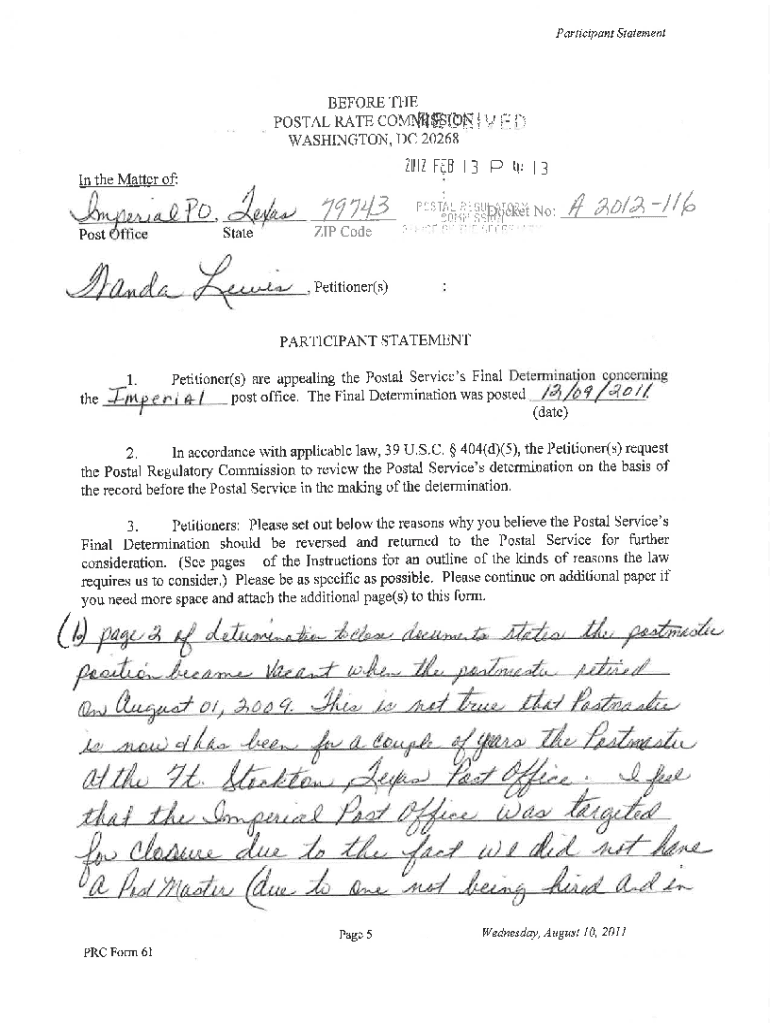 Participant Statement
BEFORE THE
POSTAL RATE COMMISSION
RECEIVED
WASHINGTON, DC 20268
2012 FEB 13 P 4: 13
In the Matter of:
:
Imperial PO, Texas 79743
POSTAL REGULATORY
COMMISSION
Docket No: A 2012-116
Post Office State ZIP Code
OFFICE OF THE SECRETARY
Wanda Lewis, Petitioner(s) :
PARTICIPANT STATEMENT
1. Petitioner(s) are appealing the Postal Service's Final Determination concerning
the Imperial post office. The Final Determination was posted 12/09/2011.
(date)
2. In accordance with applicable law, 39 U.S.C. § 404(d)(5), the Petitioner(s) request
the Postal Regulatory Commission to review the Postal Service's determination on the basis of
the record before the Postal Service in the making of the determination.
3. Petitioners: Please set out below the reasons why you believe the Postal Service's
Final Determination should be reversed and returned to the Postal Service for further
consideration. (See pages of the Instructions for an outline of the kinds of reasons the law
requires us to consider.) Please be as specific as possible. Please continue on additional paper if
you need more space and attach the additional page(s) to this form.
(1) page 2 of determination to close documents states the postmaster
position became vacant when the postmaster retired
on August 01, 2009. This is not true that Postmaster
is now & has been for a couple of years the Postmaster
at the Ft. Stockton, Texas Post Office. I feel
that the Imperial Post Office was targeted
for closure due to the fact we did not have
a Post Master (due to one not being hired and in
Page 5
Wednesday, August 10, 2011
PRC Form 61